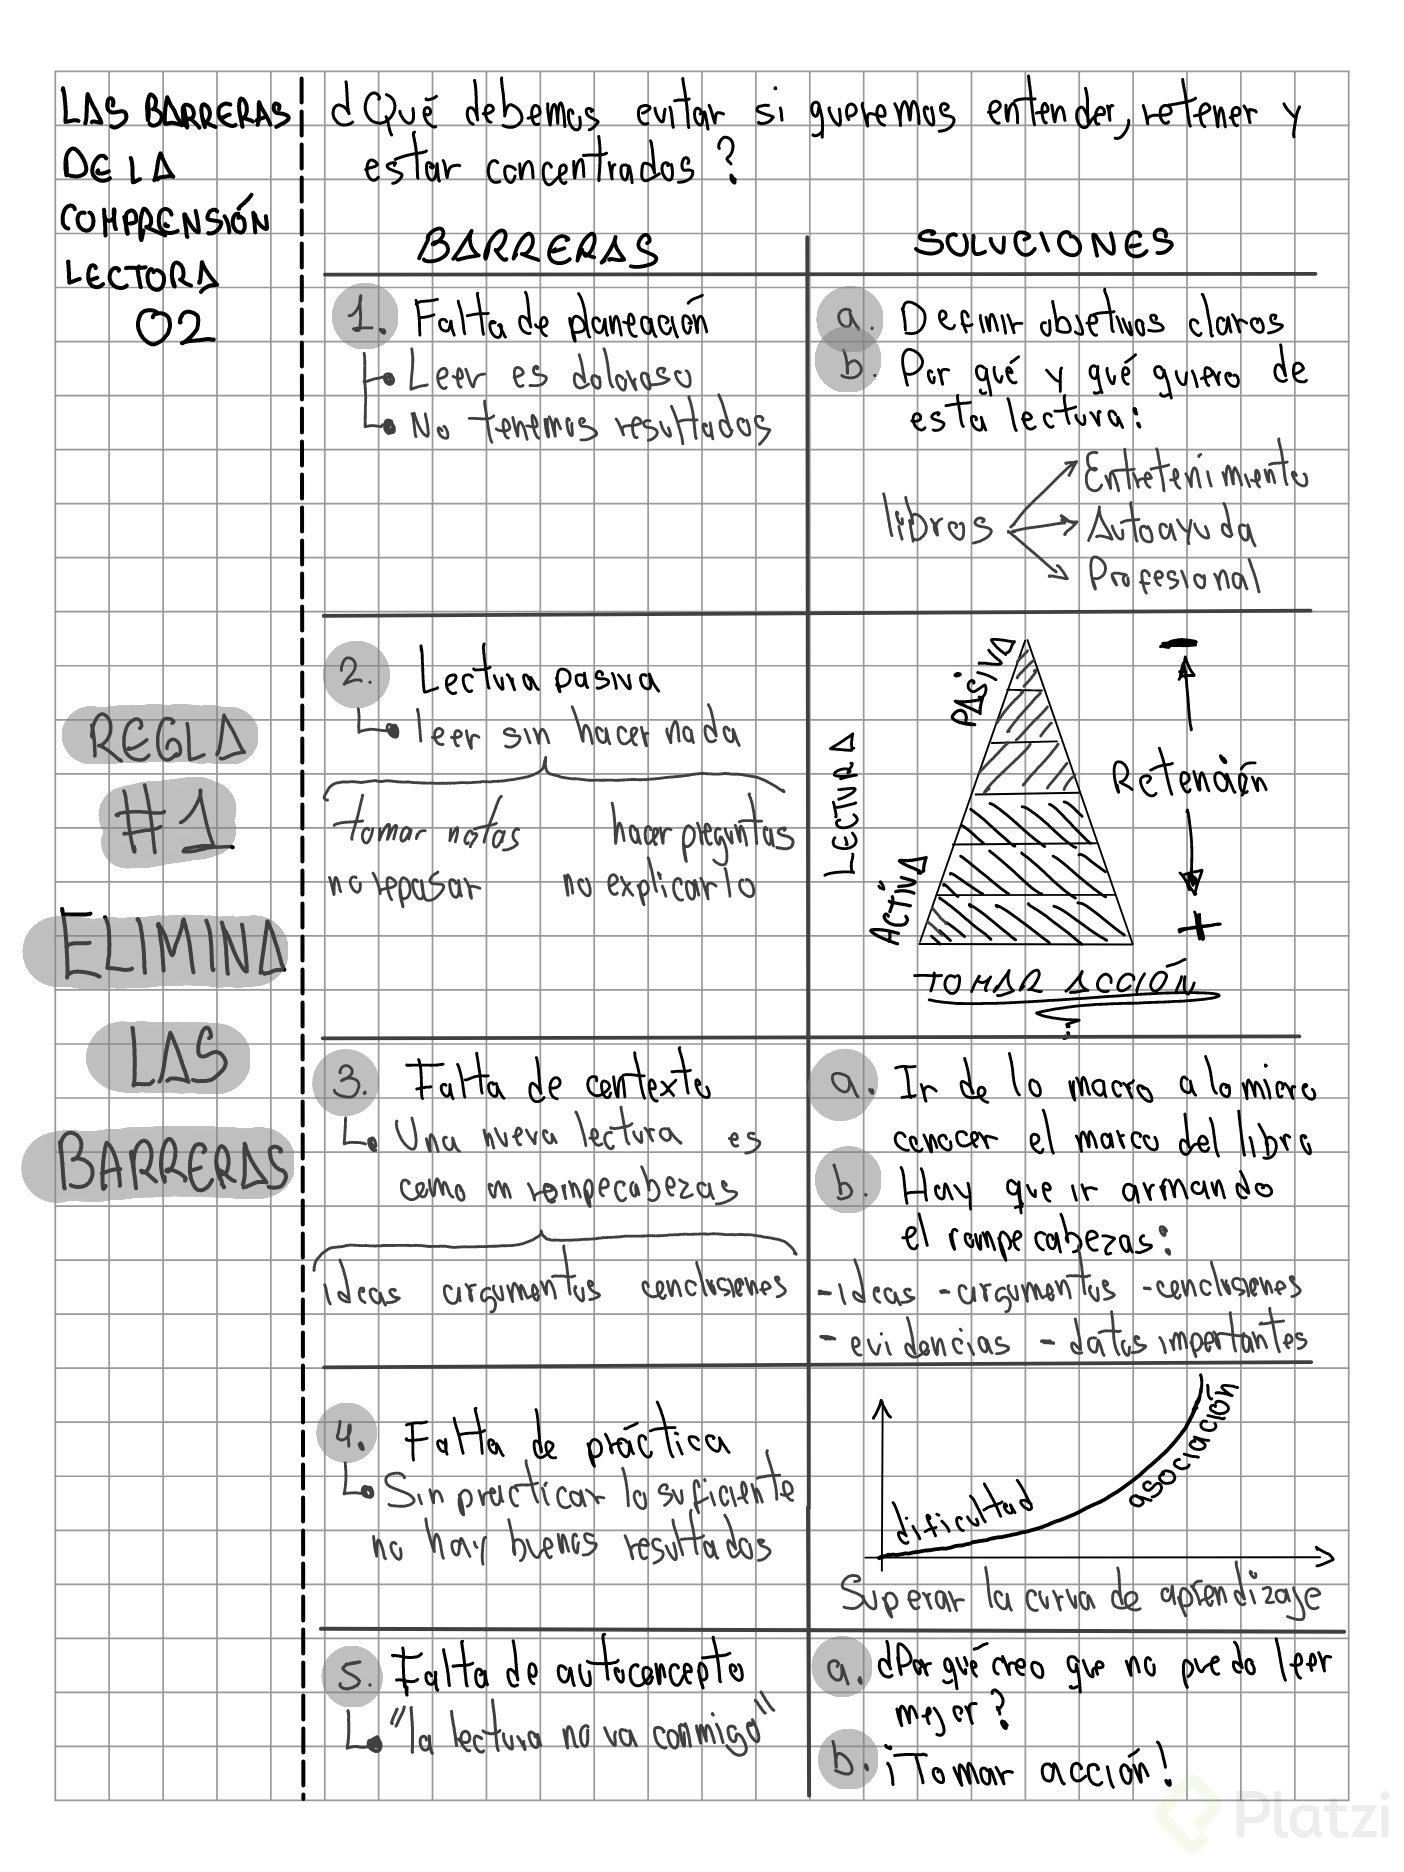 LAS BARRERAS
DE LA
COMPRENSIÓN
LECTORA
02
REGLA
#1
ELIMINA
LAS
BARRERAS
¿Qué debemos evitar si queremos entender, retener y
estar concentrados?
BARRERAS
SOLUCIONES
1. Falta de planeación
Leer es doloroso
No tenemos resultados
a. Definir objetivos claros
b. Por qué y qué quiero de
esta lectura:
libros
Entretenimiento
Autoayuda
Profesional
2. Lectura pasiva
leer sin hacer nada
tomar notas hacer preguntas
no repasar no explicarlo
LECTURA
PASIVA
ACTIVA
-
Retención
+
TOMAR ACCIÓN
3. Falta de contexto
Una nueva lectura es
como un rompecabezas
ideas argumentos conclusiones
a. Ir de lo macro a lo micro
conocer el marco del libro
b. Hay que ir armando
el rompecabezas:
-ideas -argumentos -conclusiones
- evidencias - datos importantes
4. Falta de práctica
Sin practicar lo suficiente
no hay buenos resultados
dificultad
asociación
Superar la curva de aprendizaje
5. Falta de autoconcepto
"la lectura no va conmigo"
a. ¿Por qué creo que no puedo leer
mejor?
b. ¡Tomar acción!
Platzi